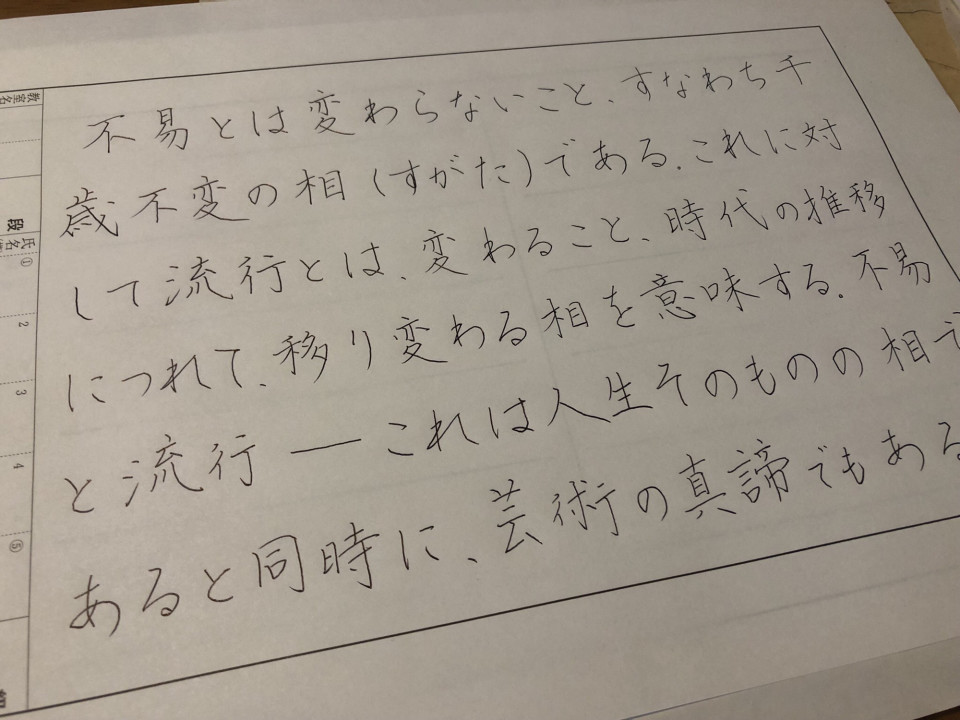 不易とは変わらないこと、すなわち千
歳不変の相（すがた）である。これに対
して流行とは、変わること、時代の推移
につれて、移り変わる相を意味する。不易
と流行 ― これは人生そのものの相で
あると同時に、芸術の真諦でもある
教室名
段
氏名
①
2
3
4
⑤